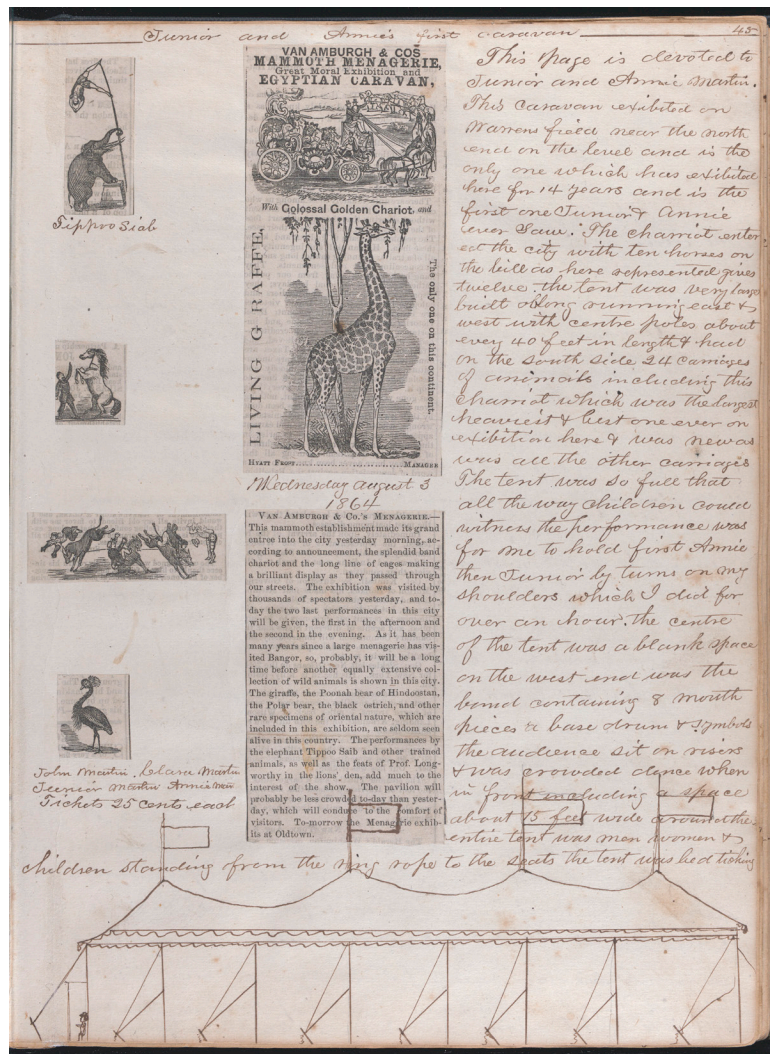 Junior and Annie's first caravan
45
Tippoo Siab
VAN AMBURGH & COS
MAMMOTH MENAGERIE,
Great Moral Exhibition and
EGYPTIAN CARAVAN,
With Golossal Golden Chariot, and
LIVING GIRAFFE,
The only one on this continent.
HYATT FROST........................MANAGER
Wednesday August 3
1864
VAN AMBURGH & CO.'S MENAGERIE.—
This mammoth establishment made its grand
entree into the city yesterday morning, ac-
cording to announcement, the splendid band
chariot and the long line of cages making
a brilliant display as they passed through
our streets. The exhibition was visited by
thousands of spectators yesterday, and to-
day the two last performances in this city
will be given, the first in the afternoon and
the second in the evening. As it has been
many years since a large menagerie has vis-
ited Bangor, so, probably, it will be a long
time before another equally extensive col-
lection of wild animals is shown in this city.
The giraffe, the Poonah bear of Hindoostan,
the Polar bear, the black ostrich, and other
rare specimens of oriental nature, which are
included in this exhibition, are seldom seen
alive in this country. The performances by
the elephant Tippoo Saib and other trained
animals, as well as the feats of Prof. Long-
worthy in the lions' den, add much to the
interest of the show. The pavilion will
probably be less crowded to-day than yester-
day, which will conduce to the comfort of
visitors. To-morrow the Menagerie exhib-
its at Oldtown.
John Martin. Clara Martin
Junior Martin Annie Mar
Tickets 25 cents each
This page is devoted to
Junior and Annie Martin.
This caravan exibited on
Warrens field near the north
end on the level and is the
only one which has exibited
here for 14 years and is the
first one Junior & Annie
ever Saw. The charriot enter
ed the city with ten horses on
the bill as here represented gives
twelve. the tent was very large
built oblong running east &
west with centre poles about
every 40 feet in length & had
on the south side 24 carriages
of animals including this
charriot which was the largest
heaviest & best one ever on
exibition here & was new as
was all the other carriages
The tent was so full that
all the way children could
witness the performance was
for me to hold first Annie
then Junior by turns on my
shoulders which I did for
over an hour. the centre
of the tent was a blank space
on the west end was the
band containing 8 mouth
pieces a base drum & symbols
the audience sit on risers
& was crowded dence when
in front including a space
about 15 feet wide around the
entire tent was men women &
children standing from the ring rope to the seats the tent was bed ticking